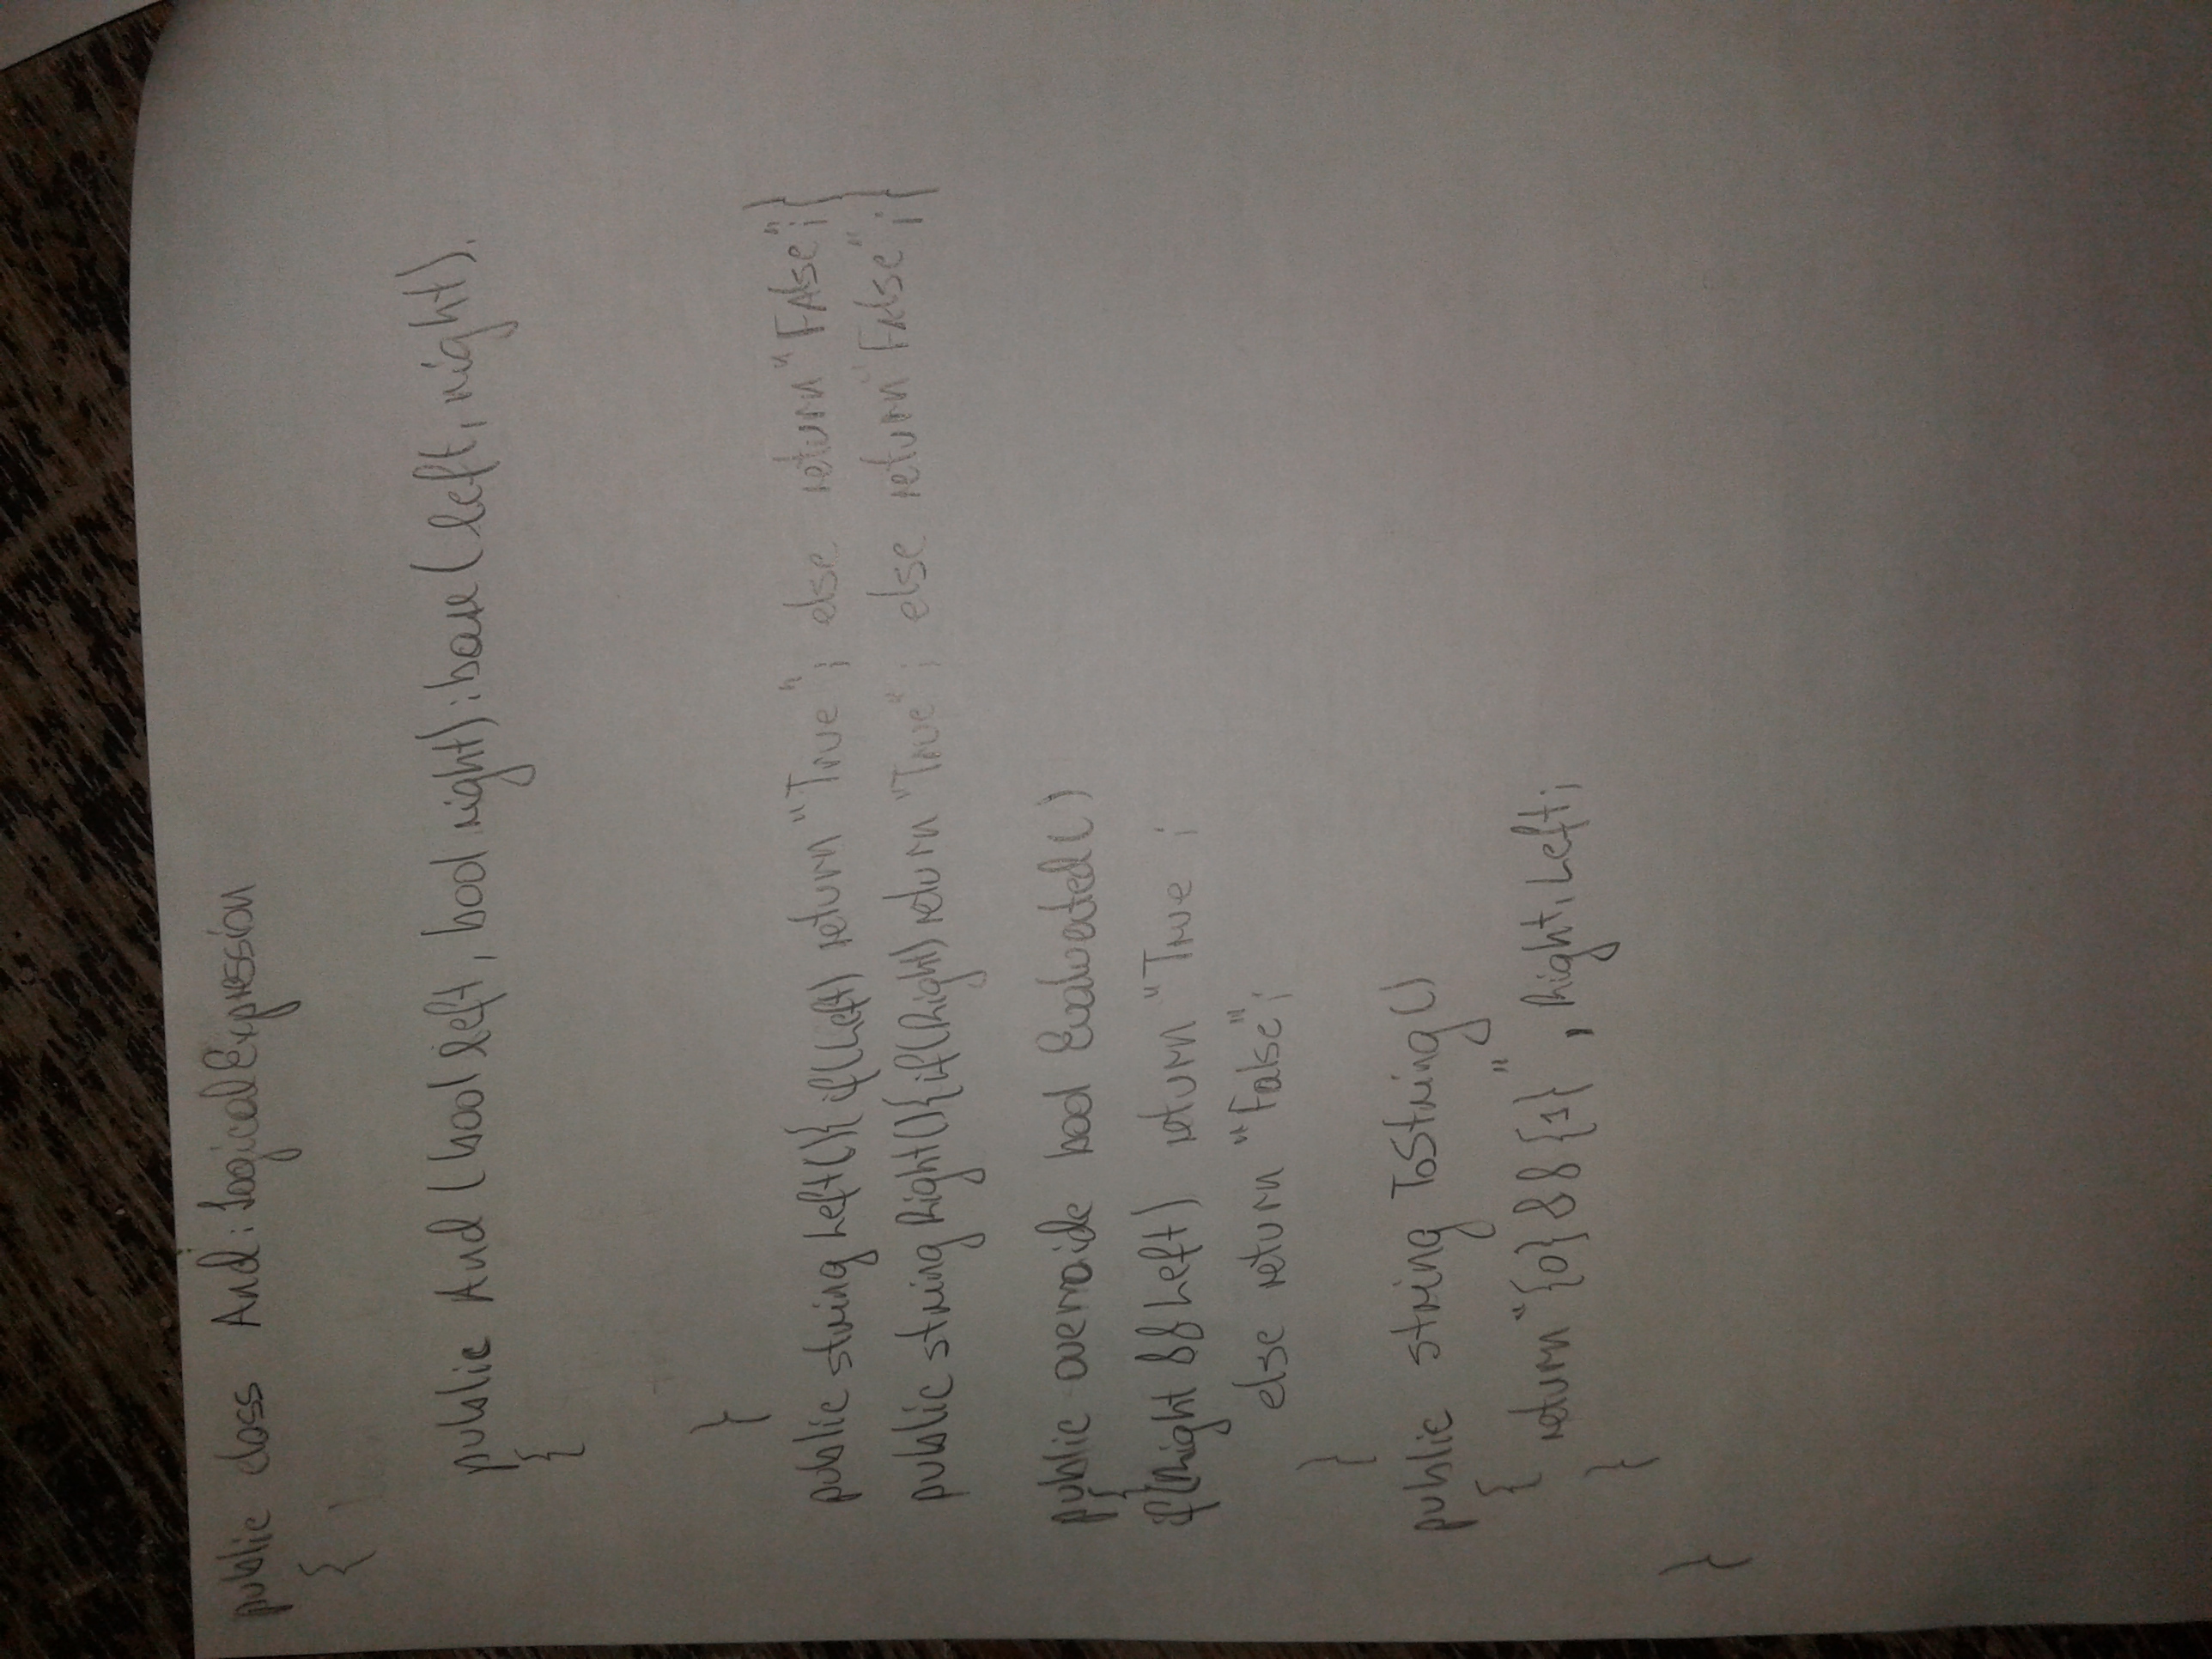 public class And : LogicalExpression
{
public And (bool left, bool right) : base (left, right).
{
}
public string Left(){ if(Left) return "True" ; else return "FAlse";}
public string Right(){ if(Right) return "True" ; else return "FAlse" ;}
public overraide bool Evaluated()
{
if(Right && Left) return "True ;
else return "False";
}
public string ToString()
{
return "{0} && {1}" , Right, Left;
}
}